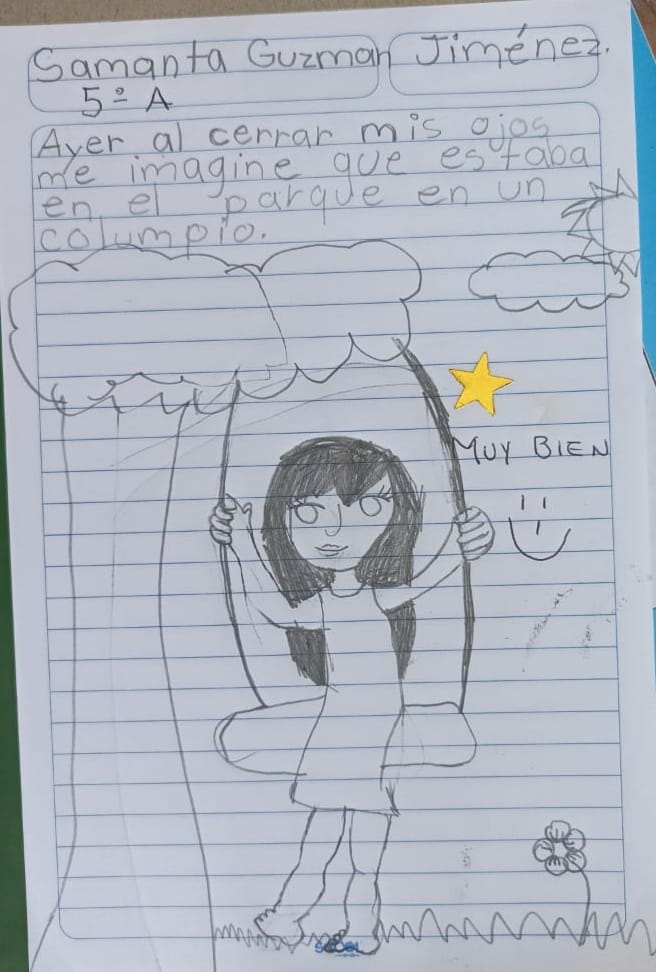 Samanta Guzman Jiménez.
5º A
Ayer al cerrar mis ojos
me imagine que estaba
en el parque en un
columpio.
MUY BIEN